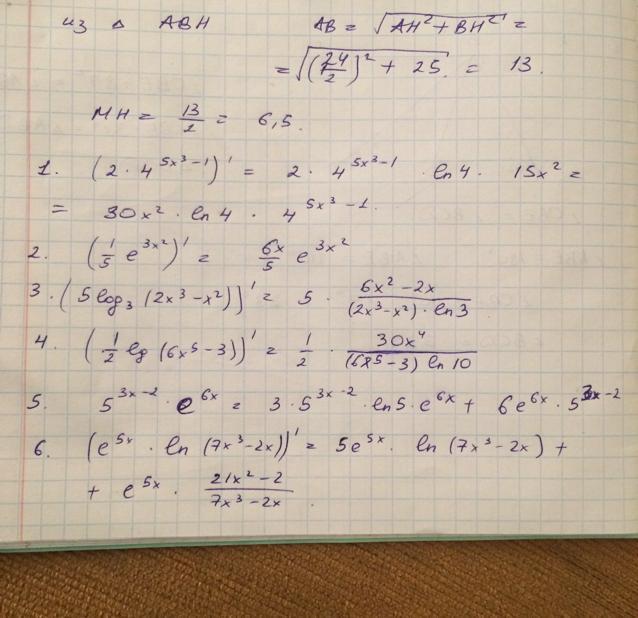 из Δ ABH AB = √(AH² + BH²) =
= √((24/2)² + 25) = 13.
MH = 13/2 = 6,5.
1. (2 · 4^(5x³-1))' = 2 · 4^(5x³-1) · ln4 · 15x² =
= 30x² · ln 4 · 4^(5x³-1).
2. (1/5 e^(3x²))' = 6x/5 e^(3x²)
3. (5 log₃ (2x³ - x²))' = 5 · (6x² - 2x)/((2x³ - x²) · ln 3)
4. (1/2 lg (6x⁵ - 3))' = 1/2 · 30x⁴/((6x⁵ - 3) ln 10)
5. 5^(3x-2) · e^(6x) = 3 · 5^(3x-2) · ln5 · e^(6x) + 6e^(6x) · 5^(3x-2)
6. (e^(5x) · ln (7x³ - 2x))' = 5e^(5x) · ln (7x³ - 2x) +
+ e^(5x) · (21x² - 2)/(7x³ - 2x).